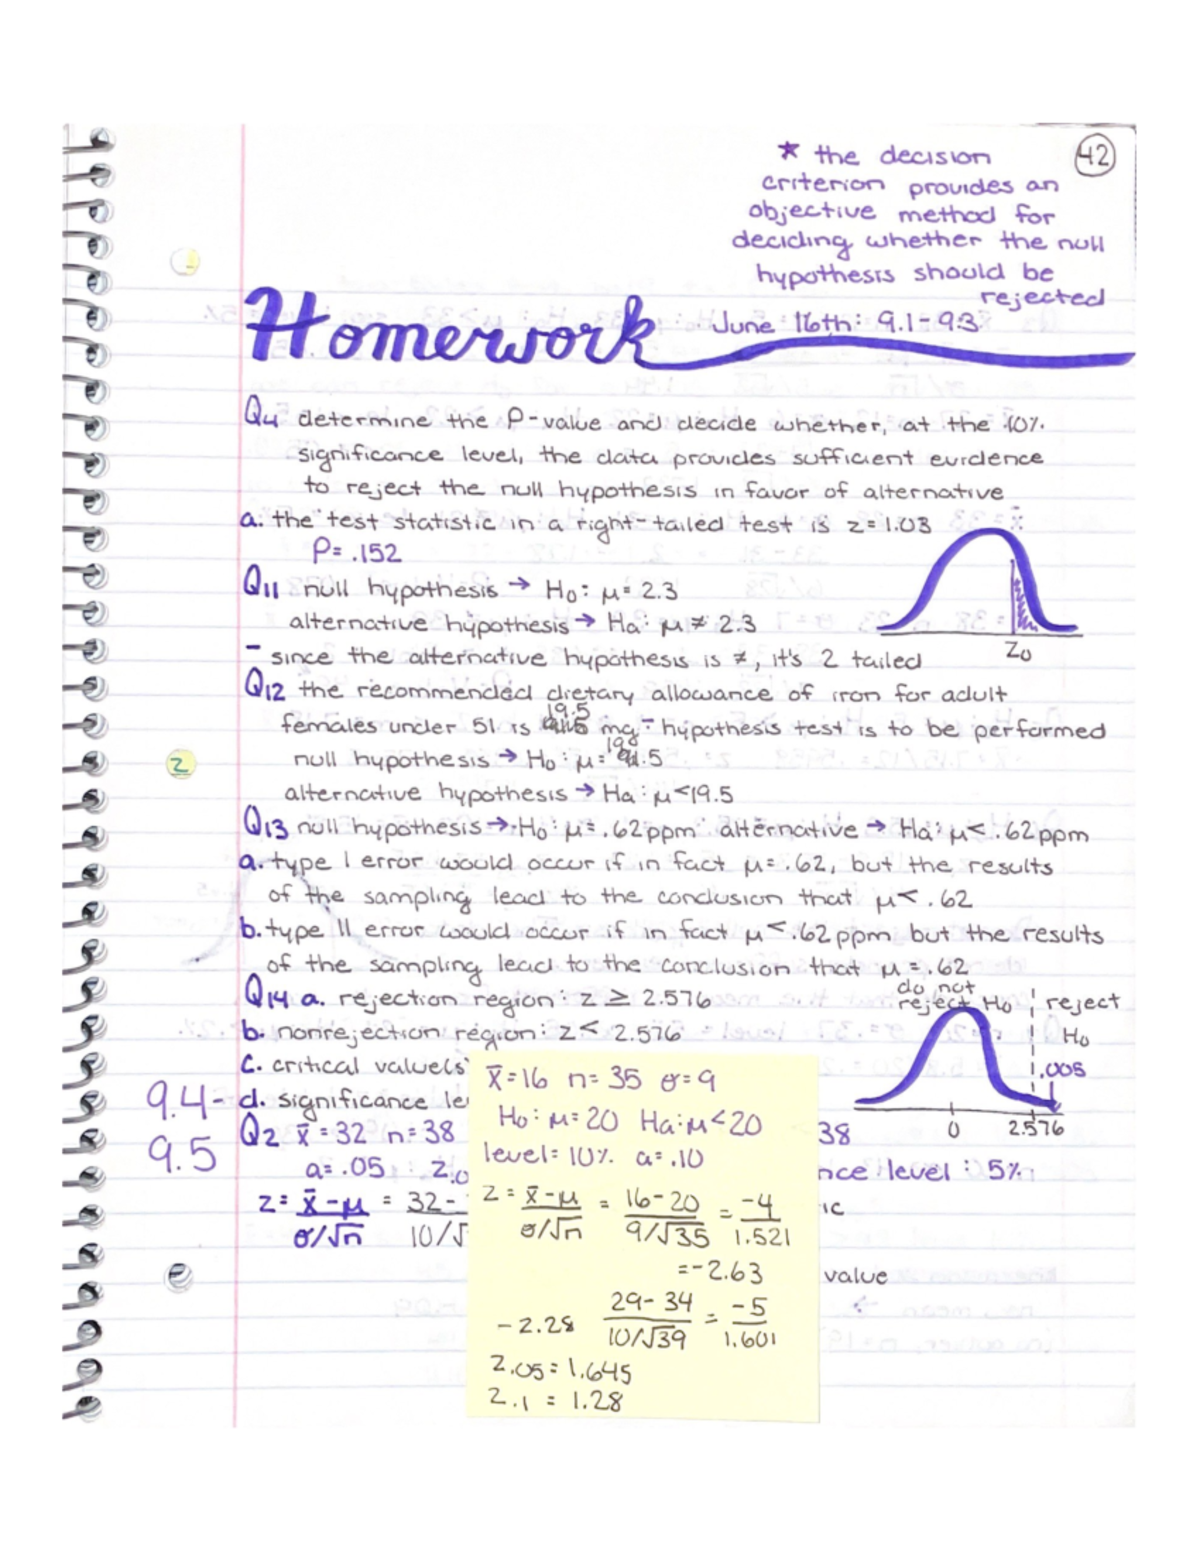 42
* the decision
criterion provides an
objective method for
deciding whether the null
hypothesis should be
rejected
Homework June 16th: 9.1-9.3
Q4 determine the P-value and decide whether, at the 10%
significance level, the data provides sufficient evidence
to reject the null hypothesis in favor of alternative
a. the test statistic in a right-tailed test is z=1.03
P= .152
Q11 null hypothesis → H₀: μ= 2.3
alternative hypothesis → Ha: μ ≠ 2.3
- since the alternative hypothesis is ≠, it's 2 tailed
Z₀
Q12 the recommended dietary allowance of iron for adult
females under 51 is 19.5 mg - hypothesis test is to be performed
null hypothesis → H₀: μ= .5
alternative hypothesis → Ha: μ<19.5
2
Q13 null hypothesis → H₀: μ= .62ppm alternative → Ha: μ< .62ppm
a. type I error would occur if in fact μ= .62, but the results
of the sampling lead to the conclusion that μ< .62
b. type II error would occur if in fact μ<.62ppm but the results
of the sampling lead to the conclusion that μ = .62
Q14 a. rejection region: z ≥ 2.576
b. nonrejection region: z < 2.576
c. critical value(s)
d. significance le
do not
reject H₀
reject
H₀
.005
0 2.576
9.4-
9.5
Q2 x̄ = 32 n= 38
38
a= .05 : z.0
nce level : 5%
z= x̄-μ / σ/√n = 32- / 10/√
ic
value
x̄=16 n= 35 σ=9
H₀: μ=20 Ha:μ<20
level= 10% a= .10
z= x̄-μ / σ/√n = 16-20 / 9/√35 = -4 / 1.521
=-2.63
-2.28 29-34 / 10/√39 = -5 / 1.601
z.05=1.645
z.1 = 1.28